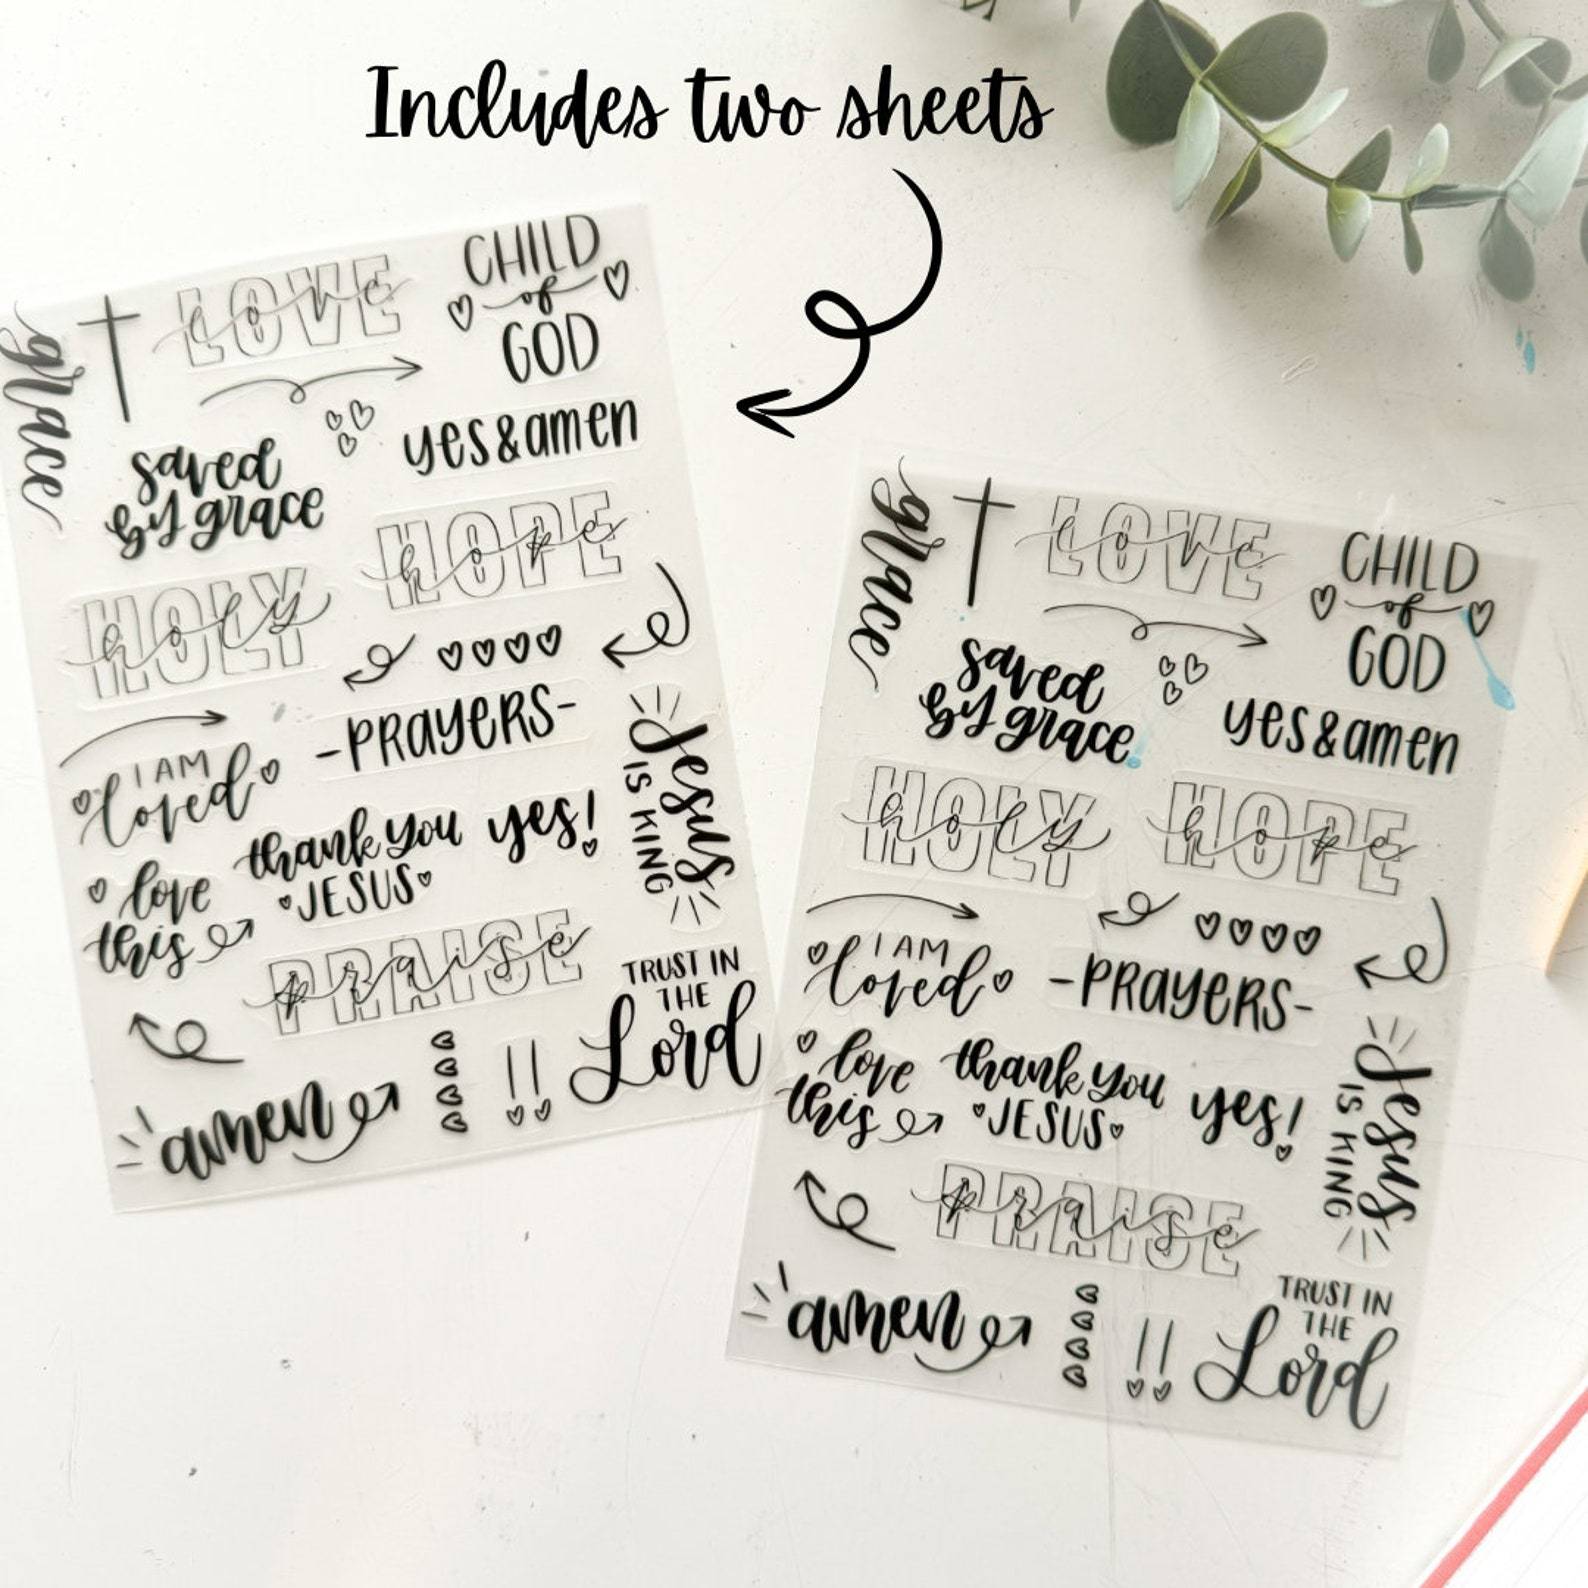 Includes two sheets
grace
LOVE
love
CHILD
of
GOD
saved
by grace
yes&amen
HOLY
holy
HOPE
hope
-PRAYERS-
I AM
loved
Jesus
IS KING
love
this
thank you
JESUS
yes!
PRAISE
praise
TRUST IN
THE
Lord
amen
!!
grace
LOVE
love
CHILD
of
GOD
saved
by grace
yes&amen
HOLY
holy
HOPE
hope
I AM
loved
-PRAYERS-
love
this
thank you
JESUS
yes!
Jesus
IS KING
PRAISE
praise
amen
!!
TRUST IN
THE
Lord